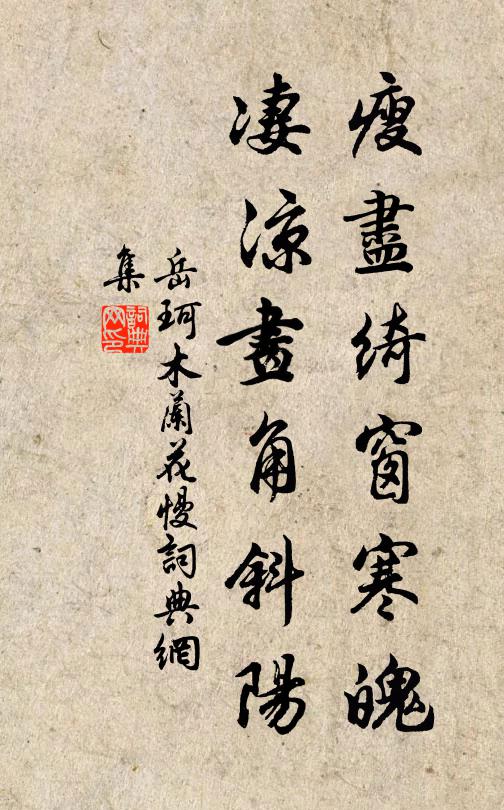 瘦盡綺窗寒魄
凄涼畫角斜陽
岳珂木蘭花慢詞典網
集
詞典
网印